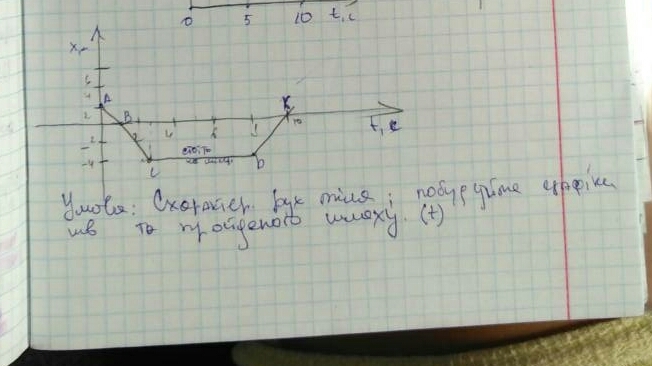 0 5 10 t, с
x, м
6
4 A
2 B K
2 4 6 8 10 t, с
-2
-4 C стоїть D
на місці
Умова: Схарактер. рух тіла; побудуйте графіки
шв та пройденого шляху. (t)